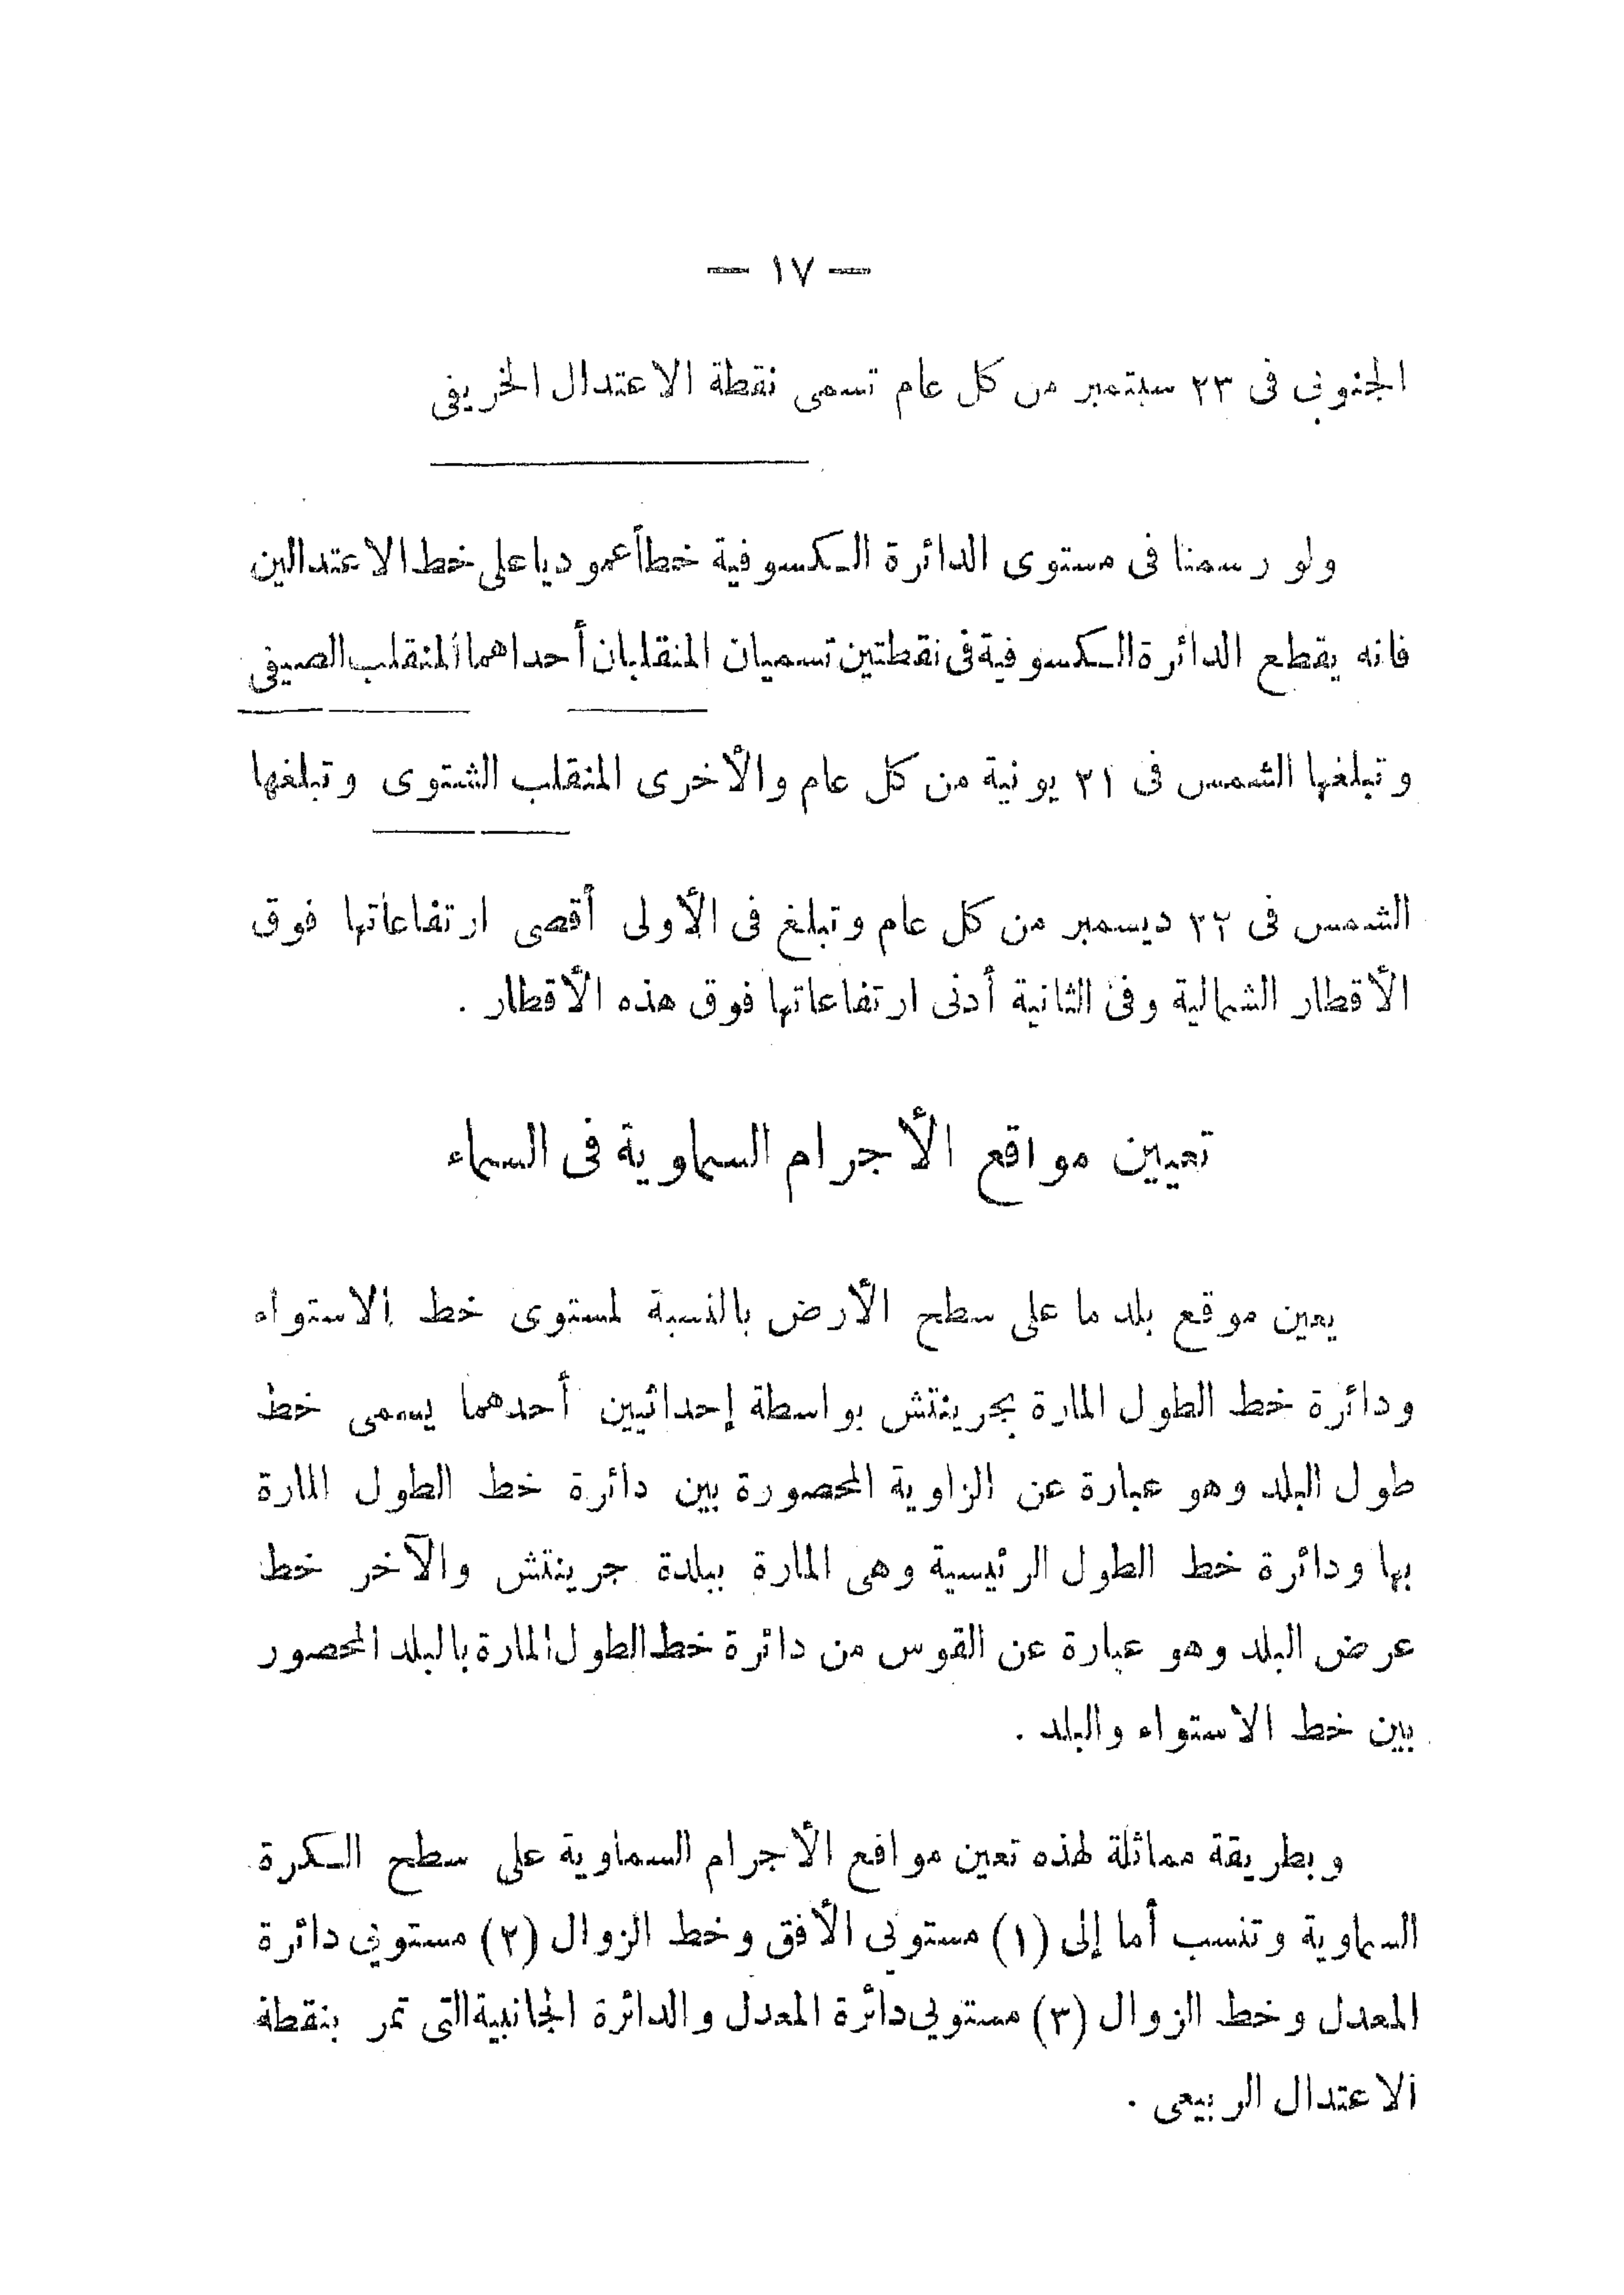 — ١٧ —
الجنوبى فى ٢٣ سبتمبر من كل عام تسمى نقطة الاعتدال الخريفى
ولو رسمنا فى مستوى الدائرة الكسوفية خطاً عموديا على خط الاعتدالين
فانه يقطع الدائرة الكسوفية فى نقطتين تسميان المنقلبان أحداهما المنقلب الصيفى
وتبلغها الشمس فى ٢١ يونية من كل عام والأخرى المنقلب الشتوى وتبلغها
الشمس فى ٢٢ ديسمبر من كل عام وتبلغ فى الأولى أقصى ارتفاعاتها فوق
الأقطار الشمالية وفى الثانية أدنى ارتفاعاتها فوق هذه الأقطار .
تعيين مواقع الأجرام السماوية فى السماء
يعين موقع بلد ما على سطح الأرض بالنسبة لمستوى خط الاستواء
ودائرة خط الطول المارة بجرينتش بواسطة إحداثيين أحدهما يسمى خط
طول البلد وهو عبارة عن الزاوية المحصورة بين دائرة خط الطول المارة
بها ودائرة خط الطول الرئيسية وهى المارة ببلدة جرينتش والآخر خط
عرض البلد وهو عبارة عن القوس من دائرة خط الطول المارة بالبلد المحصور
بين خط الاستواء والبلد .
وبطريقة مماثلة لهذه تعين مواقع الأجرام السماوية على سطح الكرة
السماوية وتنسب أما إلى (١) مستوى الأفق وخط الزوال (٢) مستوى دائرة
المعدل وخط الزوال (٣) مستوى دائرة المعدل والدائرة الجانبية التى تمر بنقطة
الاعتدال الربيعى .